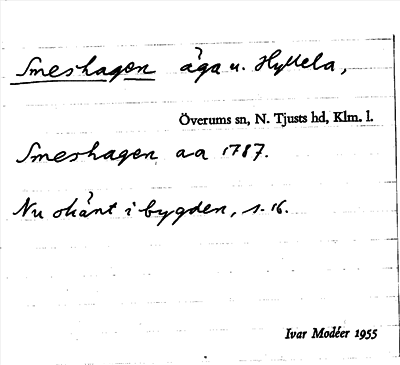 Smeshagen äga u. Hyllela,
Överums sn, N. Tjusts hd, Klm. l.
Smeshagen aa 1787.
Nu okänt i bygden, s. 16.
Ivar Modéer 1955